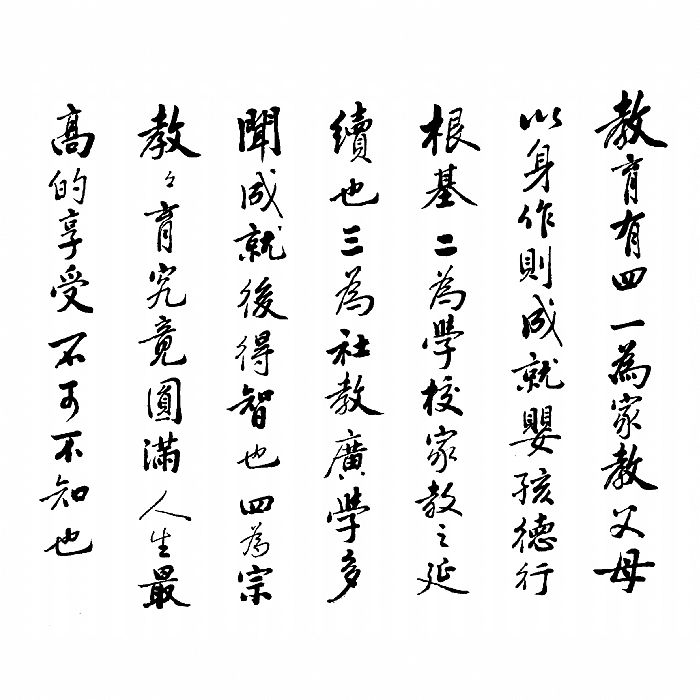 教育有四一為家教父母
以身作則成就嬰孩德行
根基二為學校家教之延
續也三為社教廣學多
聞成就後得智也四為宗
教々育究竟圓滿人生最
高的享受不可不知也